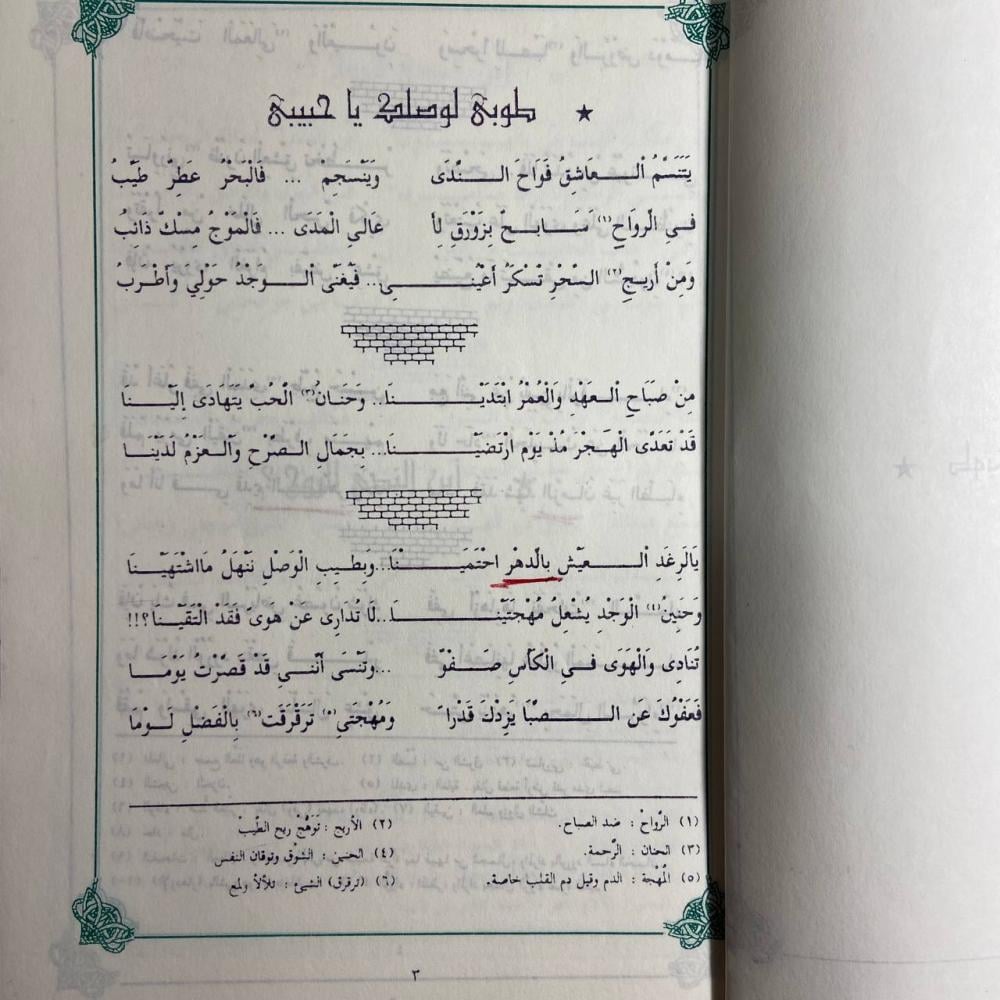 ★ طوبى لوصلك يا حبيبي
يَتَنَسَّمُ الْعَاشِقُ فَوَاحَ النَّدَى وَيَنْسَجِمْ ... فَالْبَحْرُ عَطِرٌ طَيِّبُ
فِي الرَوَاحِ (١) سَابِحٌ بِزَوْرَقِ لِأَ عَالِي الْمَدَى ... فَالْمَوْجُ مِسْكٌ ذَائِبُ
وَمِنْ أَرِيجِ (٢) السِّحْرِ تَسْكَرُ أَعْيُنِي... فَيَغْنَى الْوَجْدُ حَوْلِي وَأَطْرَبُ
مِنْ صَبَاحِ الْعَهْدِ وَالْعُمْرُ ابْتَدَيْنَا... وَحَنَانُ (٣) الْحُبِّ يَتَهَادَى إِلَيْنَا
قَدْ تَعَدَّى الْهَجْرَ مُذْ يَوْمِ ارْتَضَيْنَا... بِجَمَالِ الصَّرْحِ وَالْعَزْمُ لَدَيْنَا
يَالَرِغَدِ الْعَيْشِ بِالدَهْرِ احْتَمَيْنَا...وَبِطِيبِ الْوَصْلِ نَنْهَلُ مَااشْتَهَيْنَا
وَحَنِينُ (٤) الْوَجْدِ يُشْعِلُ مُهْجَتَيْنَا...لَا تُدَارِى عَنْ هَوَى فَقَدْ الْتَقَيْنَا؟!!
تُنَادِى وَالْهَوَى فِي الْكَأْسِ صَفْوٌ ...وَتَنْسَى أَنَّنِي قَدْ قَصَّرْتُ يَوْمَا
فَعَفْوُكَ عَنِ الصِّبَا يَزِدْكَ قَدْرًا وَمُهْجَتِي (٥) تَرَقْرَقَتْ (٦) بِالْفَضْلِ لَوْمَا
(١) الرَّوَاحْ : ضد الصباح. (٢) الأريج : تَوَهُّجْ ريح الطِّيبْ
(٣) الحنان : الرَّحمة. (٤) الحنين : الشوق وتوقان النفس
(٥) الْمُهْجة : الدم وقيل دم القلب خاصة. (٦) (ترقرق) الشئ : تلألأ ولمع
٣